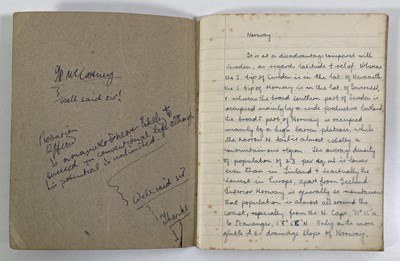 JP McCartney
Well said sir!
is
succeed in conventional life although
his potential is unlimited.
Well said sir
Thanks
Norway
It is at a disadvantage compared with
Sweden, as regards latitude & relief. Whereas
the S. tip of Sweden is in the lat. of Newcastle
the S. tip of Norway is in the lat. of Inverness,
& whereas the broad southern part of Sweden is
occupied mainly by a wide productive lowland,
the broad S. part of Norway is occupied
mainly by a high barren plateau, while
the narrow N. tail is almost wholly a
mountainous region. The average density
of population of 23 per sq. ml is lower
even than in Finland & is actually the
lowest in Europe, apart from Iceland.
Interior Norway is generally so mountainous
that population is almost all around the
coast, especially from the N. Cape, 71° N.
to Stavanger, N. Only on the more
gentle S.E. drainage slope of Norway.